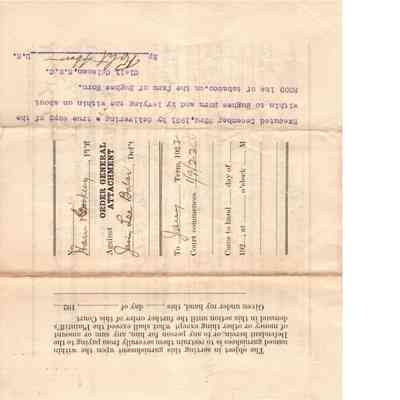 The object in serving this garnishment upon the within
named garnishees is to restrain them severally from paying to the
Defendant herein, or to any person for him, any sum or amount
of money or other thing except what shall exceed the Plaintiff's
demand in this action until the further order of this Court.
Given under my hand, this day of
192
No.
Pl'ff
Against
ORDER GENERAL
ATTACHMENT
Lee Def't
To Jany Term, 1922
Court commences 1/9/22
Came to hand day of
192 , at o'clock M
Executed December 22nd, 1921 by delivering a true copy of the
within to Hughes and by levying the within on about
8000 lbs of tobacco, on the farm of Hughes
Clell Coleman,
By D.S.